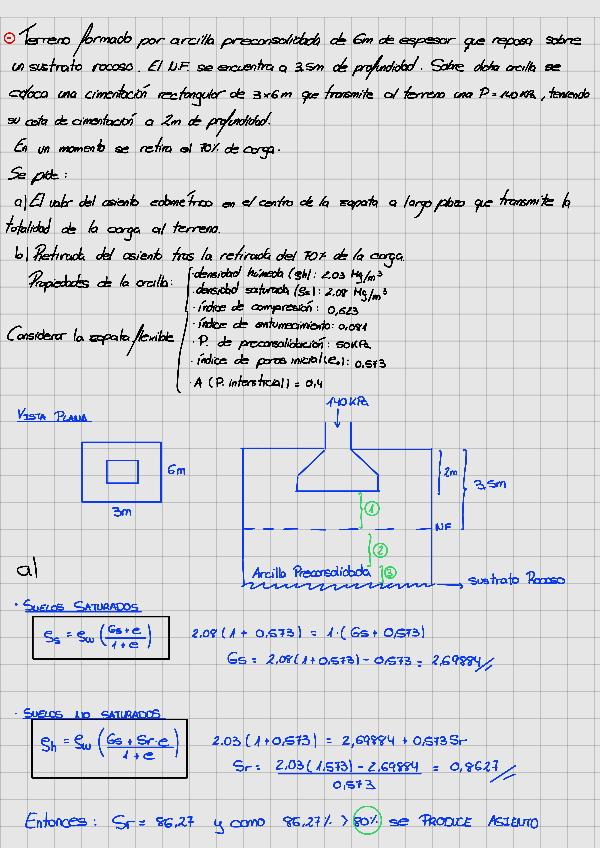 ⊖ Terreno formado por arcilla preconsolidada de 6m de espesor que reposa sobre
un sustrato rocoso. El N.F. se encuentra a 3.5m de profundidad. Sobre dicha arcilla se
coloca una cimentación rectangular de 3x6m que transmite al terreno una P = 140 KPa, teniendo
su cota de cimentación a 2m de profundidad.
En un momento se retira el 70% de carga.
Se pide:
a) El valor del asiento edométrico en el centro de la zapata a largo plazo que transmite la
totalidad de la carga al terreno.
b) Retirada del asiento tras la retirada del 70% de la carga.
Propiedades de la arcilla:
· densidad húmeda (Sh): 2.03 Mg/m³
· densidad saturada (Ss): 2.08 Mg/m³
· índice de compresión: 0,623
· índice de entumecimiento: 0.081
· P. de preconsolidación: 50KPa
· índice de poros inicial (e.): 0,573
· A (P. intersticial) = 0,4
Considerar la zapata flexible
VISTA PLANA
6m
3m
140 KPa
2m
3,5m
①
NF
②
③
Arcilla Preconsolidada
sustrato Rocoso
a)
· SUELOS SATURADOS
ρs = ρw (Gs+e / 1+e)
2.08 (1 + 0,573) = 1 · (Gs + 0,573)
Gs = 2,08 (1+0,573) - 0,573 = 2,69884
· SUELOS NO SATURADOS
ρh = ρw (Gs + Sr·e / 1+e)
2.03 (1+0,573) = 2,69884 + 0,573 Sr
Sr = 2.03 (1.573) - 2,69884 / 0,573 = 0,8627
Entonces: Sr = 86,27 y como 86,27% > 80% se PRODUCE ASIENTO